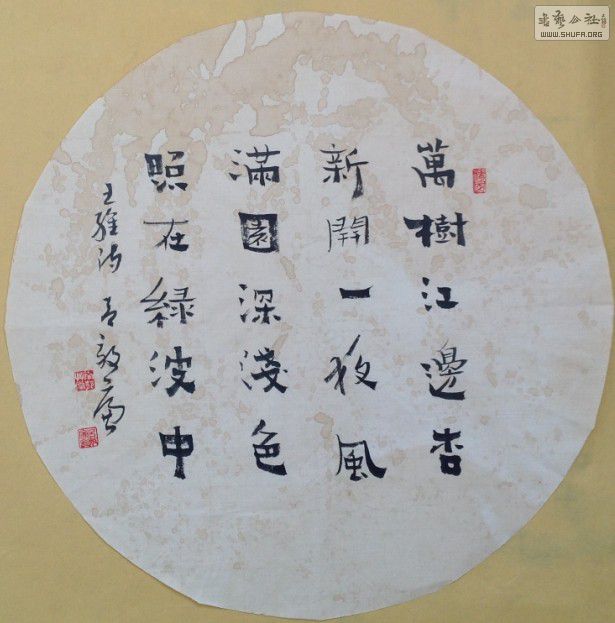 萬樹江邊杏
新開一夜風
滿園深淺色
照在綠波中
王維詩
書藝公社
WWW.SHUFA.ORG